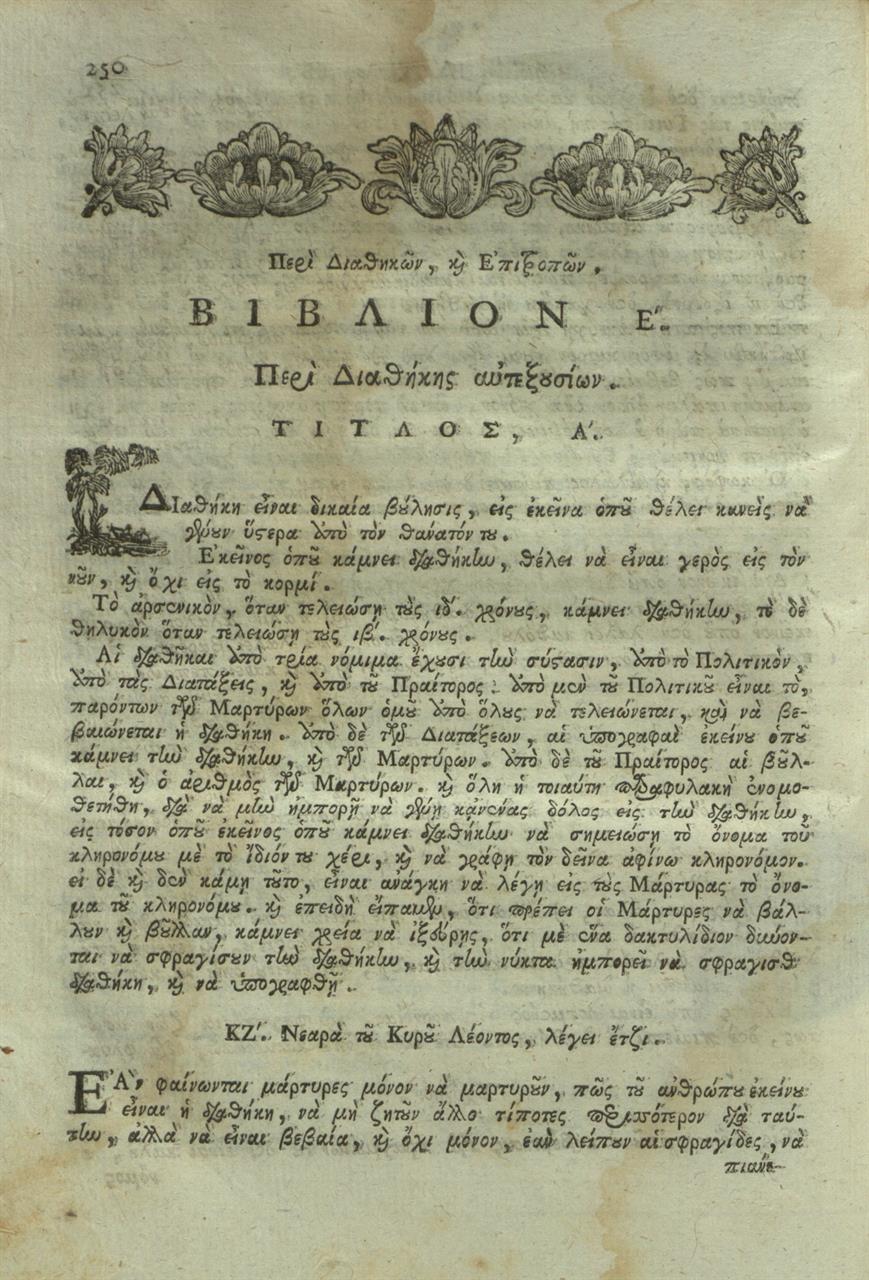 250
Περὶ Διαθηκῶν, καὶ Ἐπιτροπῶν.
ΒΙΒΛΙΟΝ Ε΄.
Περὶ Διαθήκης αὐτεξουσίων.
ΤΙΤΛΟΣ, Α΄.
ΔΙαθήκη εἶναι δικαία βούλησις, εἰς ἐκεῖνα ὁποῦ θέλει κανεὶς νὰ
γένουν ὕστερα ἀπὸ τὸν θάνατόν του.
Ἐκεῖνος ὁποῦ κάμνει διαθήκην, θέλει νὰ εἶναι γερὸς εἰς τὸν
νοῦν, καὶ ὄχι εἰς τὸ κορμί.
Τὸ ἀρσενικὸν, ὅταν τελειώσῃ τοὺς ιδ΄. χρόνους, κάμνει διαθήκην, τὸ δὲ
θηλυκὸν ὅταν τελειώσῃ τοὺς ιβ΄. χρόνους.
Αἱ διαθῆκαι ἀπὸ τρία νόμιμα ἔχουσι τὴν σύστασιν, ἀπὸ τὸ Πολιτικὸν,
ἀπὸ τὰς Διατάξεις, καὶ ἀπὸ τοῦ Πραίτορος. ἀπὸ μὲν τοῦ Πολιτικοῦ εἶναι τὸ,
παρόντων τῶν Μαρτύρων ὅλων ὁμοῦ ἀπὸ ὅλους νὰ τελειώνεται, καὶ νὰ βε-
βαιώνεται ἡ διαθήκη. ἀπὸ δὲ τῶν Διατάξεων, αἱ ὑπογραφαὶ ἐκείνου ὁποῦ
κάμνει τὴν διαθήκην, καὶ τῶν Μαρτύρων. ἀπὸ δὲ τοῦ Πραίτορος αἱ βοῦλ-
λαι, καὶ ὁ ἀριθμὸς τῶν Μαρτύρων. καὶ ὅλη ἡ τοιαύτη παραφυλακὴ ἐνομο-
θετήθη, διὰ νὰ μὴν ἠμπορῇ νὰ γένῃ κᾀνένας δόλος εἰς τὴν διαθήκην,
εἰς τόσον ὁποῦ ἐκεῖνος ὁποῦ κάμνει διαθήκην νὰ σημειώσῃ τὸ ὄνομα τοῦ
κληρονόμου μὲ τὸ ἴδιόν του χέρι, καὶ νὰ γράφῃ τὸν δεῖνα ἀφίνω κληρονόμον.
εἰ δὲ καὶ δὲν κάμῃ τοῦτο, εἶναι ἀνάγκη νὰ λέγῃ εἰς τοὺς Μάρτυρας τὸ ὄνο-
μα τοῦ κληρονόμου. καὶ ἐπειδὴ εἴπαμεν, ὅτι πρέπει οἱ Μάρτυρες νὰ βάλ-
λουν καὶ βοῦλλαν, κάμνει χρεία νὰ ἰξεύρῃς, ὅτι μὲ ἕνα δακτυλίδιον δύνον-
ται νὰ σφραγίσουν τὴν διαθήκην, καὶ τὴν νύκτα ἠμπορεῖ νὰ σφραγισθ
διαθήκη, καὶ νὰ ὑπογραφθῇ.
ΚΖ΄. Νεαρὰ τοῦ Κυροῦ Λέοντος, λέγει ἔτζι.
ἘὰΝ φαίνωνται μάρτυρες μόνον νὰ μαρτυροῦν, πῶς τοῦ ἀνθρώπου ἐκείνου
εἶναι ἡ διαθήκη, νὰ μὴ ζητοῦν ἄλλο τίποτες περισσότερον διὰ ταύ-
την, ἀλλὰ νὰ εἶναι βεβαία, καὶ ὄχι μόνον, ἐὰν λείπουν αἱ σφραγίδες, νὰ